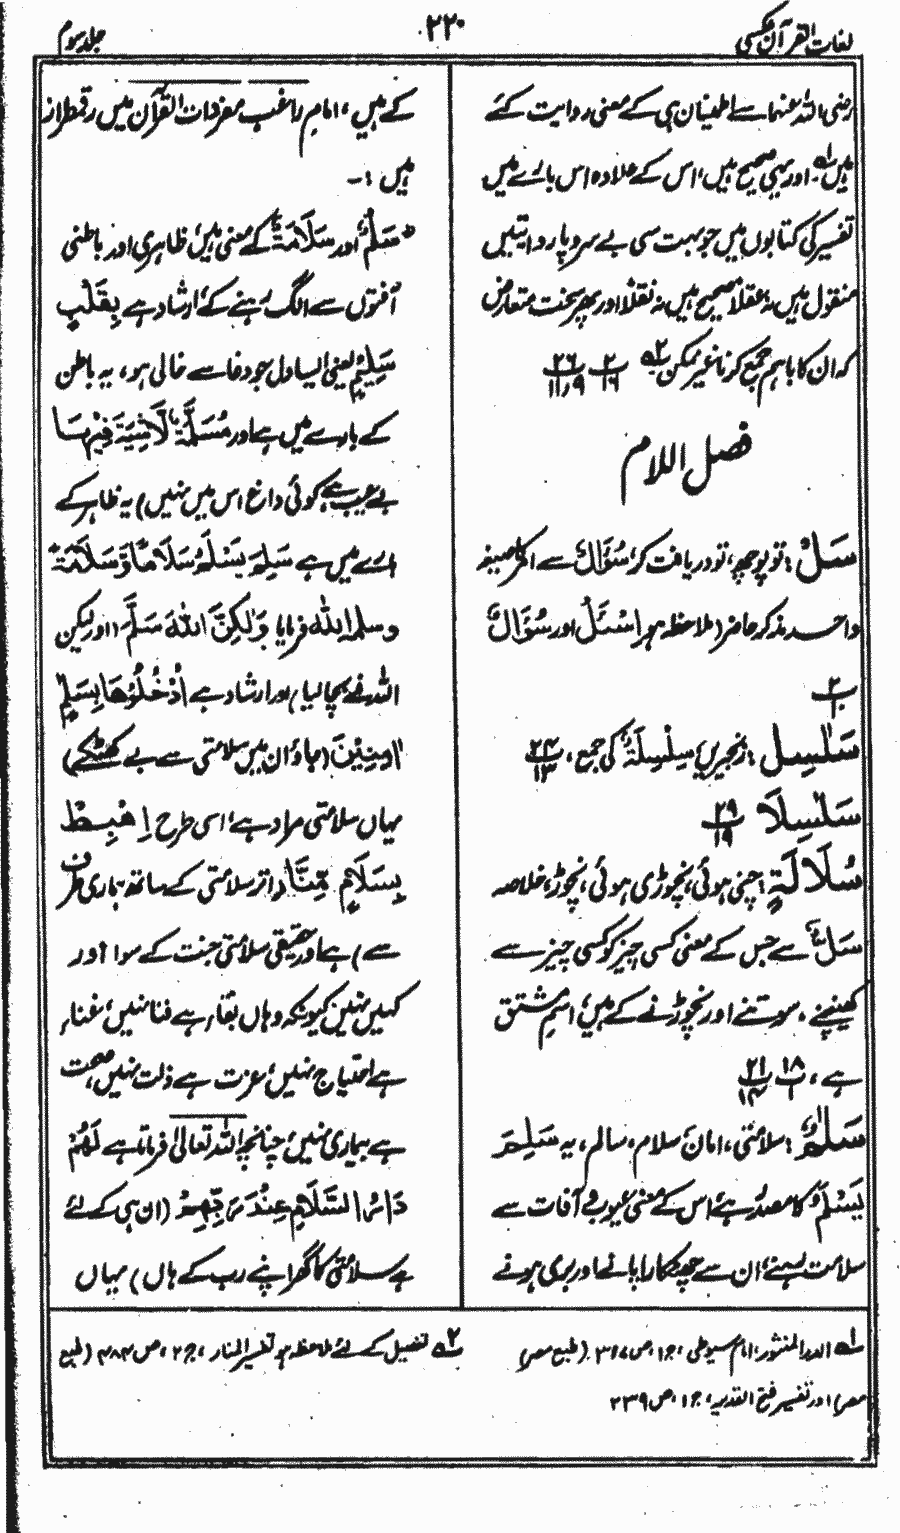 لغات القرآن عکسی
۲۲۰
جلد سوم
رضی اللہ عنہما سے اطمینان ہی کے معنی روایت کئے
ہیں۔ اور یہی صحیح ہیں، اس کے علاوہ اس بارے میں
تفسیر کی کتابوں میں جو بہت سی بے سروپا روایتیں
منقول ہیں نہ عقلاً صحیح ہیں نہ نقلاً اور پھر سخت متعارض
کہ ان کا باہم جمع کرنا غیر ممکن ۲؎ ۲/۱۶ ۲۶/۹،۱۱
فصل اللام
سَلْ: تو پوچھ، تو دریافت کر، سُؤَالٌ سے امر کا صیغہ
واحد مذکر حاضر (ملاحظہ ہو اِسْئَلْ اور سُؤَالٌ)
۲/۱۰
سَلَاسِلَ: زنجیریں، سِلْسِلَةٌ کی جمع، ۲۴/۱۳
سَلَاسِلَا ۲۹/۱۹
سُلَالَةٍ: چنی ہوئی، نچوڑی ہوئی، نچوڑ، خلاصہ
سَلٌّ سے جس کے معنی کسی چیز کو کسی چیز سے
کھینچنے، سوتنے اور نچوڑنے کے ہیں، اسم مشتق
ہے، ۱۸/۱ ۲۱/۱۴
سَلَامٌ: سلامتی، امان، سلام، سالم، یہ سَلِمَ
یَسْلَمُ کا مصدر ہے، اس کے معنی عیوب و آفات سے
سلامت رہنے، ان سے چھٹکارا پانے اور بری ہونے
کے ہیں، امام راغب مفردات القرآن میں رقمطراز
ہیں :۔
سَلْمٌ اور سَلَامَةٌ کے معنی ہیں، ظاہری اور باطنی
آفتوں سے الگ رہنے کے، ارشاد ہے بِقَلْبٍ
سَلِیْمٍ یعنی ایسا دل جو دغا سے خالی ہو، یہ باطن
کے بارے میں ہے اور مُسَلَّمَةٌ لَّا شِیَةَ فِیْهَا
بے عیب ہے کوئی داغ اس میں نہیں) یہ ظاہر کے
بارے میں ہے سَلِمَ یَسْلَمُ سَلَامًا وَّ سَلَامَةً
وسلمہ اللہ فرمایا وَلٰکِنَّ اللّٰهَ سَلَّمَ (اور لیکن
اللہ نے بچا لیا) اور ارشاد ہے اُدْخُلُوْهَا بِسَلٰمٍ
اٰمِنِیْنَ (جاؤ ان میں سلامتی سے بے کھٹکے)
یہاں سلامتی مراد ہے، اسی طرح اِهْبِطْ
بِسَلَامٍ مِّنَّا (اتر سلامتی کے ساتھ ہماری طرف
سے) ہے اور حقیقی سلامتی جنت کے سوا اور
کہیں نہیں کیونکہ وہاں بقاء ہے فنا نہیں، غناء
ہے احتیاج نہیں، عزت ہے ذلت نہیں، صحت
ہے بیماری نہیں، چنانچہ اللہ تعالیٰ فرماتا ہے لَهُمْ
دَارُ السَّلَامِ عِنْدَ رَبِّهِمْ (ان ہی کے لئے
ہے سلامتی کا گھر اپنے رب کے ہاں) یہاں
۱؎ الدر المنثور، امام سیوطی، ج۱، ص ۳۱۷ (طبع مصر)
مصر) اور تفسیر فتح القدیر، ج۱، ص ۲۳۹
۲؎ تفصیل کے لئے ملاحظہ ہو تفسیر المنار، ج۲، ص ۴۸۴ (طبع